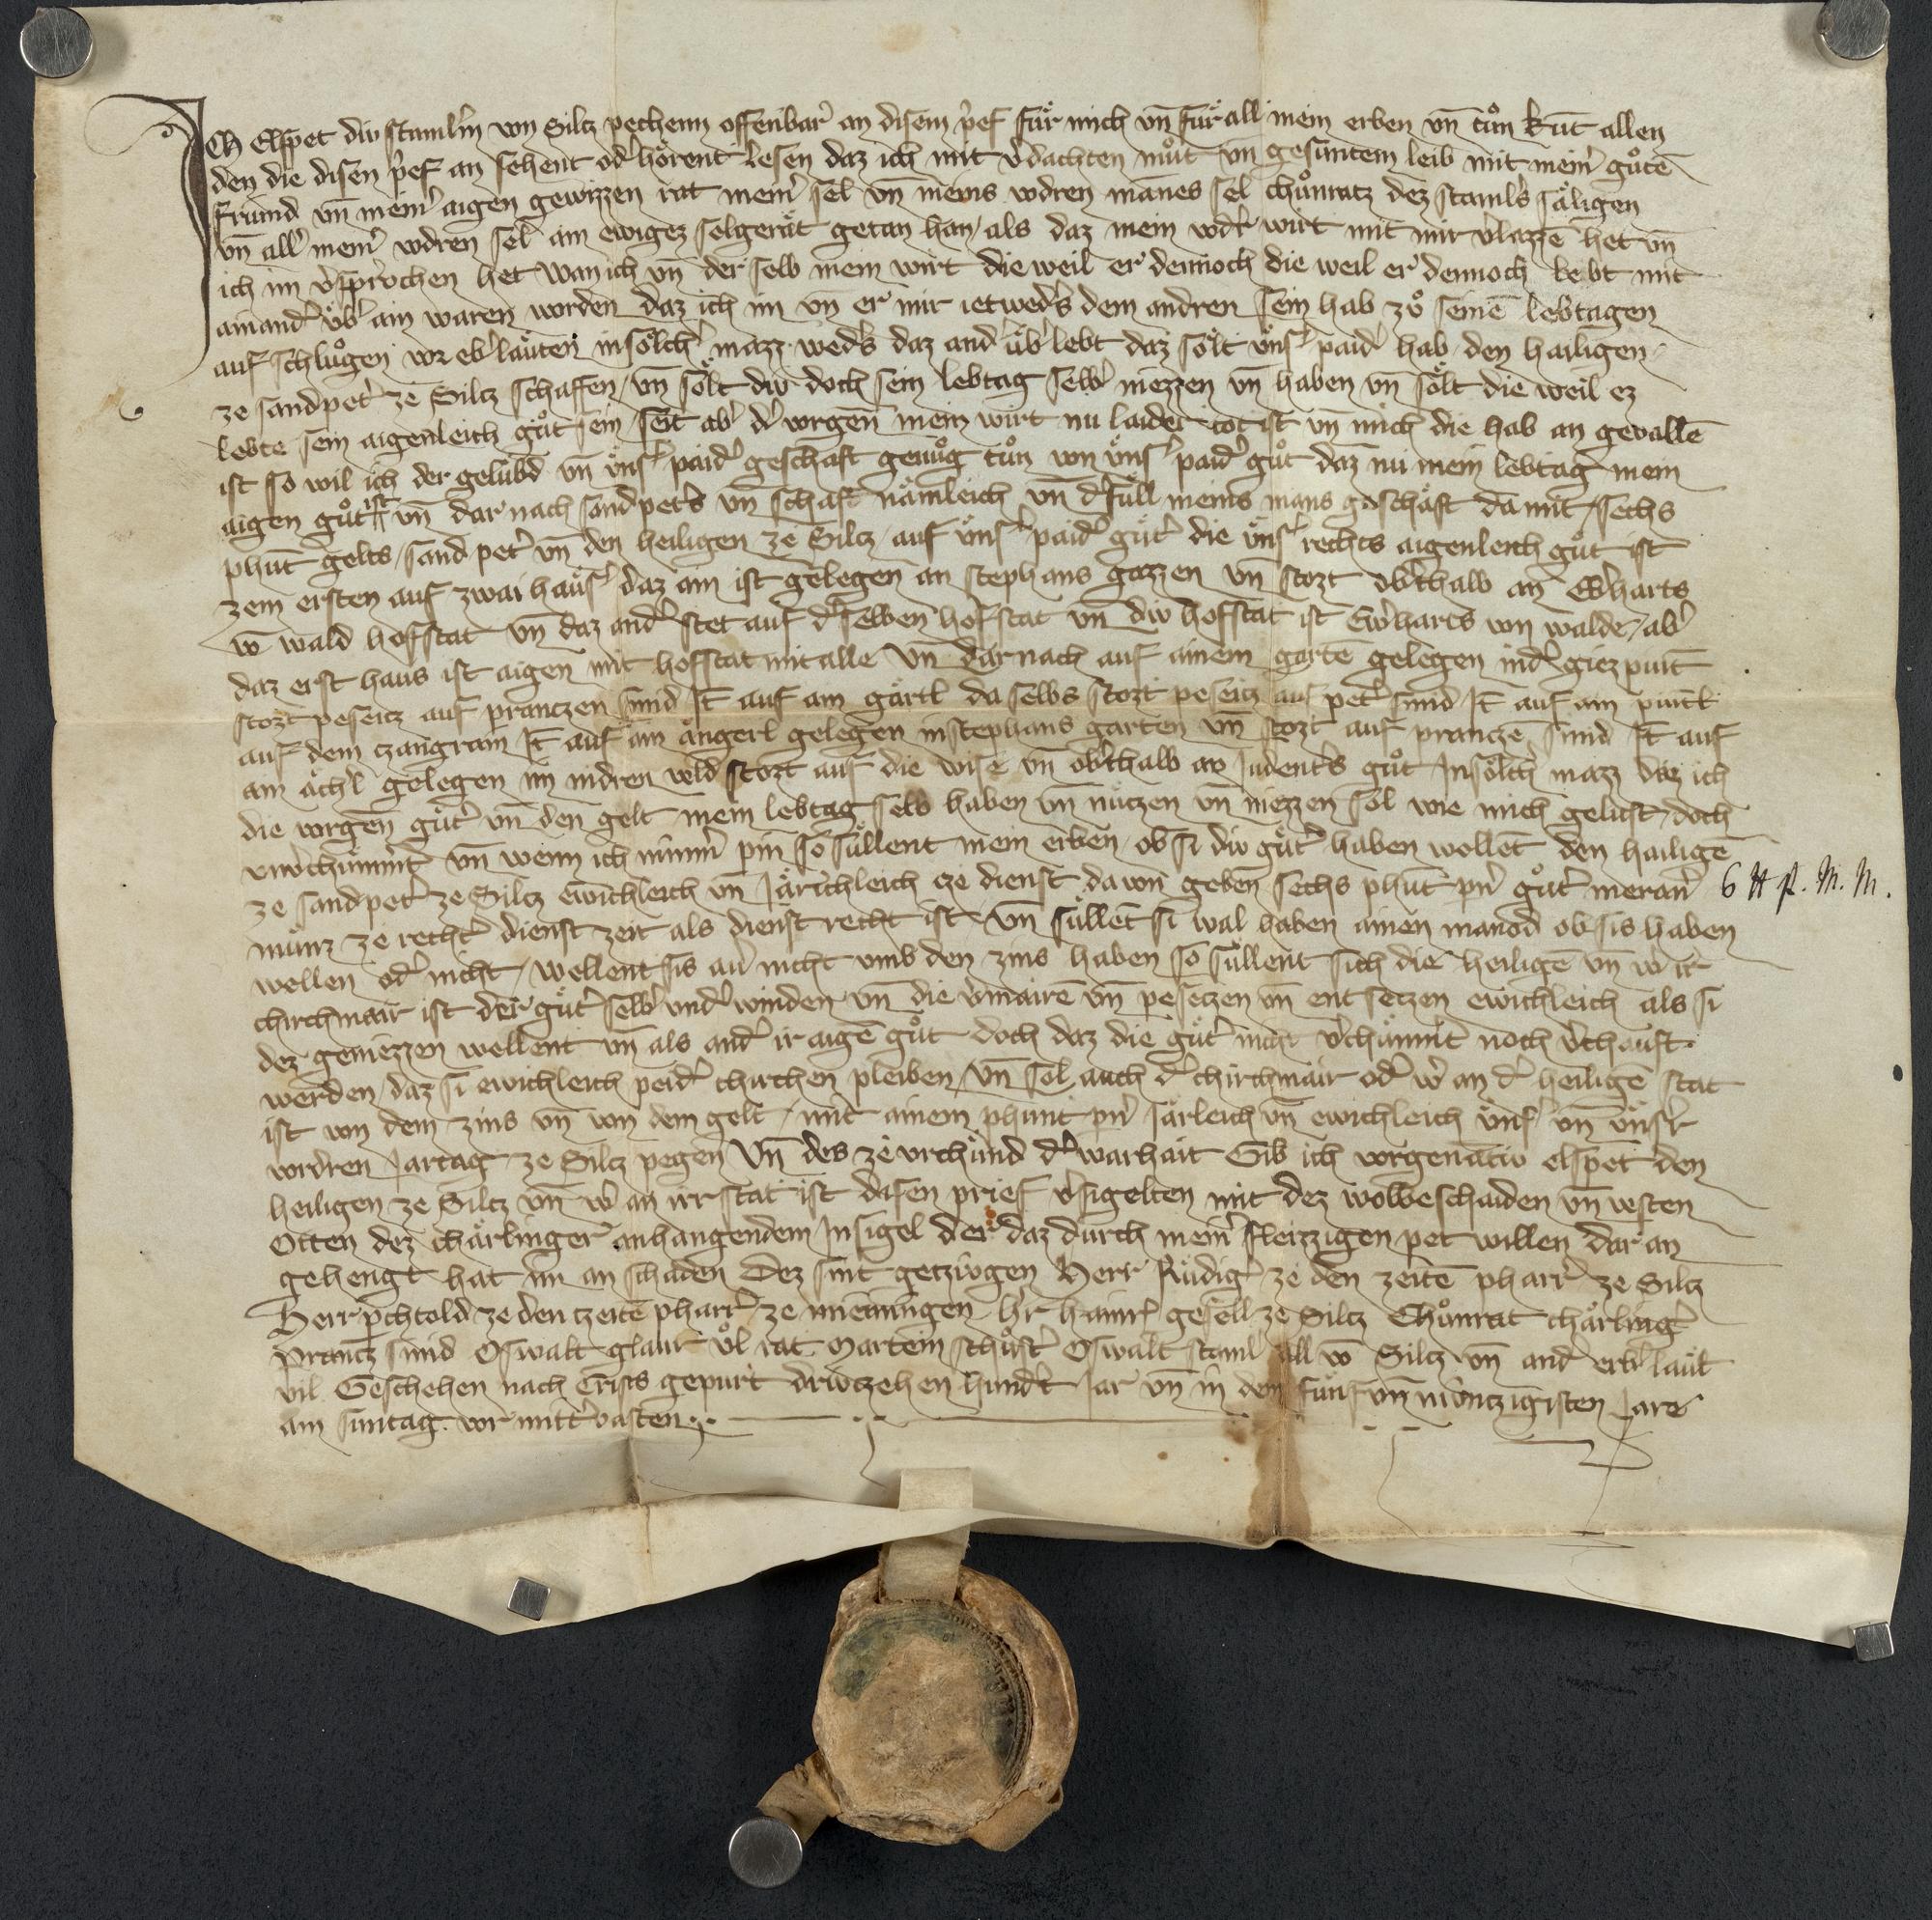 Ich Elspet diw stamlin von Silcz vechenn offenbar̄ an disem p̄ef fuͤr mich vn̄ fuͤr all mein erben vn̄ tuͦn kūt allen
den die disen p̄ef an sehent od̄ hoͤrent lesen daz ich mit v̄dachten muͦt vn̄ gesuntem leib mit mein̄ guͦtē
frund vn̄ mein̄ aigen gewizzen rat mein̄ sel vn̄ meins vodren mānes sel chuͦnratz dez stamls̄ saͤligen
vn̄ all̄ mein̄ vodren sel ain ewigez selgeraͤt getan han / als daz mein vod̄ wirt mit mir v̄lazzē het vn̄
ich im v̄sprochen het wan ich vn̄ der selb mein wirt die weil er dennoch die weil er dennoch lebt mit
ainand̄ uͤb̄ ain waren worden daz ich im vn̄ er mir ietweds̄ dem andren sein hab zuͦ seinē lebtagen
auf schluͦgen vor eb̄ laͤuten in soͤlch̄ mazz weds̄ daz and̄ uͤb̄ lebt daz soͤlt uͤns̄ paid̄ hab den hailigen
ze sand pet̄ ze Silcz schaffen / vn̄ soͤlt diw doch sein lebtag selb̄ niezzen vn̄ haben vn̄ soͤlt die weil ez
lebte sein aigenleich guͦt sein / seit ab̄ d̄ vorgen̄ mein wirt nu laider tot ist vn̄ mich die hab an gevallē
ist so wil ich der gelubd vn̄ uͤns̄ paid̄ geschaft genuͦg tuͦn von uͤns̄ paid̄ guͦt daz nu mein lebtag mein
aigen guͦt ist vn̄ dar nach sand pets̄ vn̄ schaf naͤmleich vn̄ d̄fuͤll meins mans geschaͤft da mit / sechs
phūt gelts / sand pet̄ vn̄ den heiligen ze Silcz / auf uͤns̄ paid̄ guͤt̄ die uͤns̄ rechts aigenleich guͦt ist
zem ersten auf zwai haͤus̄ daz ain ist gelegen an stephans gazzen vn̄ stozt ob̄thalb an Eb̄harts
vō wald hofstat vn̄ daz and̄ stet auf d̄ selben hofstat vn̄ diw hofstat ist Eb̄harts von walde / ab̄
daz erst haus ist aigen mit hofstat mit alle Vn̄ dar nach auf ainem gartē gelegen in d̄ giezpunt
stozt peseitz auf prantzen sund Īt auf ain gaͤrtl da selbs stozt peseitz auf pet̄ sund Īt auf ain puntl
auf dem tzangram Īt auf ain aͤngerl gelegen in stephans garten vn̄ stozt auf prantzē sund Īt auf
ain aͤch̄l gelegen im nidren veld stozt auf die wise vn̄ ob̄thalb an Judents̄ guͦt In soͤlch̄ mazz daz ich
die vorgen̄ guͤt̄ vn̄ den gelt mein lebtag selb haben vn̄ nuͤtzen vn̄ niezzen sol wie mich gelust / doch
vnv̄chuͤmm̄t vn̄ wenn ich nimm̄ pin so suͤllent mein erben ob si diw guͤt̄ haben wollēt den heiligē
ze sand pet̄ ze Silcz ewichleich vn̄ Jaͤrichleich ze dienst da von geben sechs phūt pn̄ guͦt̄ meran̄ 6 ℔ p. M. M.
muͤnz ze recht̄ dienst zeit als dienst recht ist / vn̄ suͤllēt si wal haben ainen manod ob sis haben
wellen od̄ nicht / wellent sis an nicht vmb den zins haben so suͤllent sich die heiligē vn̄ w̄ ir
chirchmair ist der guͤt̄ selb̄ vnd̄ winden vn̄ die v̄mairē vn̄ pesetzen vn̄ entsetzen ewichleich als si
dez geniezzen wellent vn̄ als and̄ ir aigē guͦt doch daz die guͤt̄ nicht v̄chuͤmm̄t noch v̄chauft
werden / daz si ewichleich peid̄ chirchen pleiben / vn̄ sol auch d̄ chirchmair od̄ w̄ an d̄ heiligē stat
ist von dem zins vn̄ von dem gelt / mit ainem phunt pn̄ Jaͤrleich vn̄ ewichleich uͤns̄ vn̄ uͤns̄r
vordren Jartag ze Silcz pegen Vn̄ des ze vrchuͤnd d̄ warhait Gib ich vorgenātiv elspet den
heiligen ze Silcz vn̄ w̄ an irr stat ist disen prief v̄sigelten mit dez wolbeschaiden vn̄ vesten
Otten dez chaͤrlinger anhangendem Insigel der daz durch mein̄ fleizzigen pet willen dar an
gehengt hat im an schaden Dez sint getzivgen Herr Ruͤdiḡ ze den zeitē pharr̄ ze Silcz
Herr p̄chtold ze den tzeitē pharr̄ ze mieningen h̄r hainr̄ gesell ze Silcz Chuͦnrat chaͤrlinḡ
prantz sund Oswalt glaur uͦl rat Martein schuͦst̄ Oswalt staml all vō Silcz vn̄ and erb̄ laͤut
vil Geschehen nach Crists gepurt driwtzehen hund̄t Jar vn̄ in dem fuͤnf vn̄ niwntzigisten Jare
am suntag vor mitt̄vasten